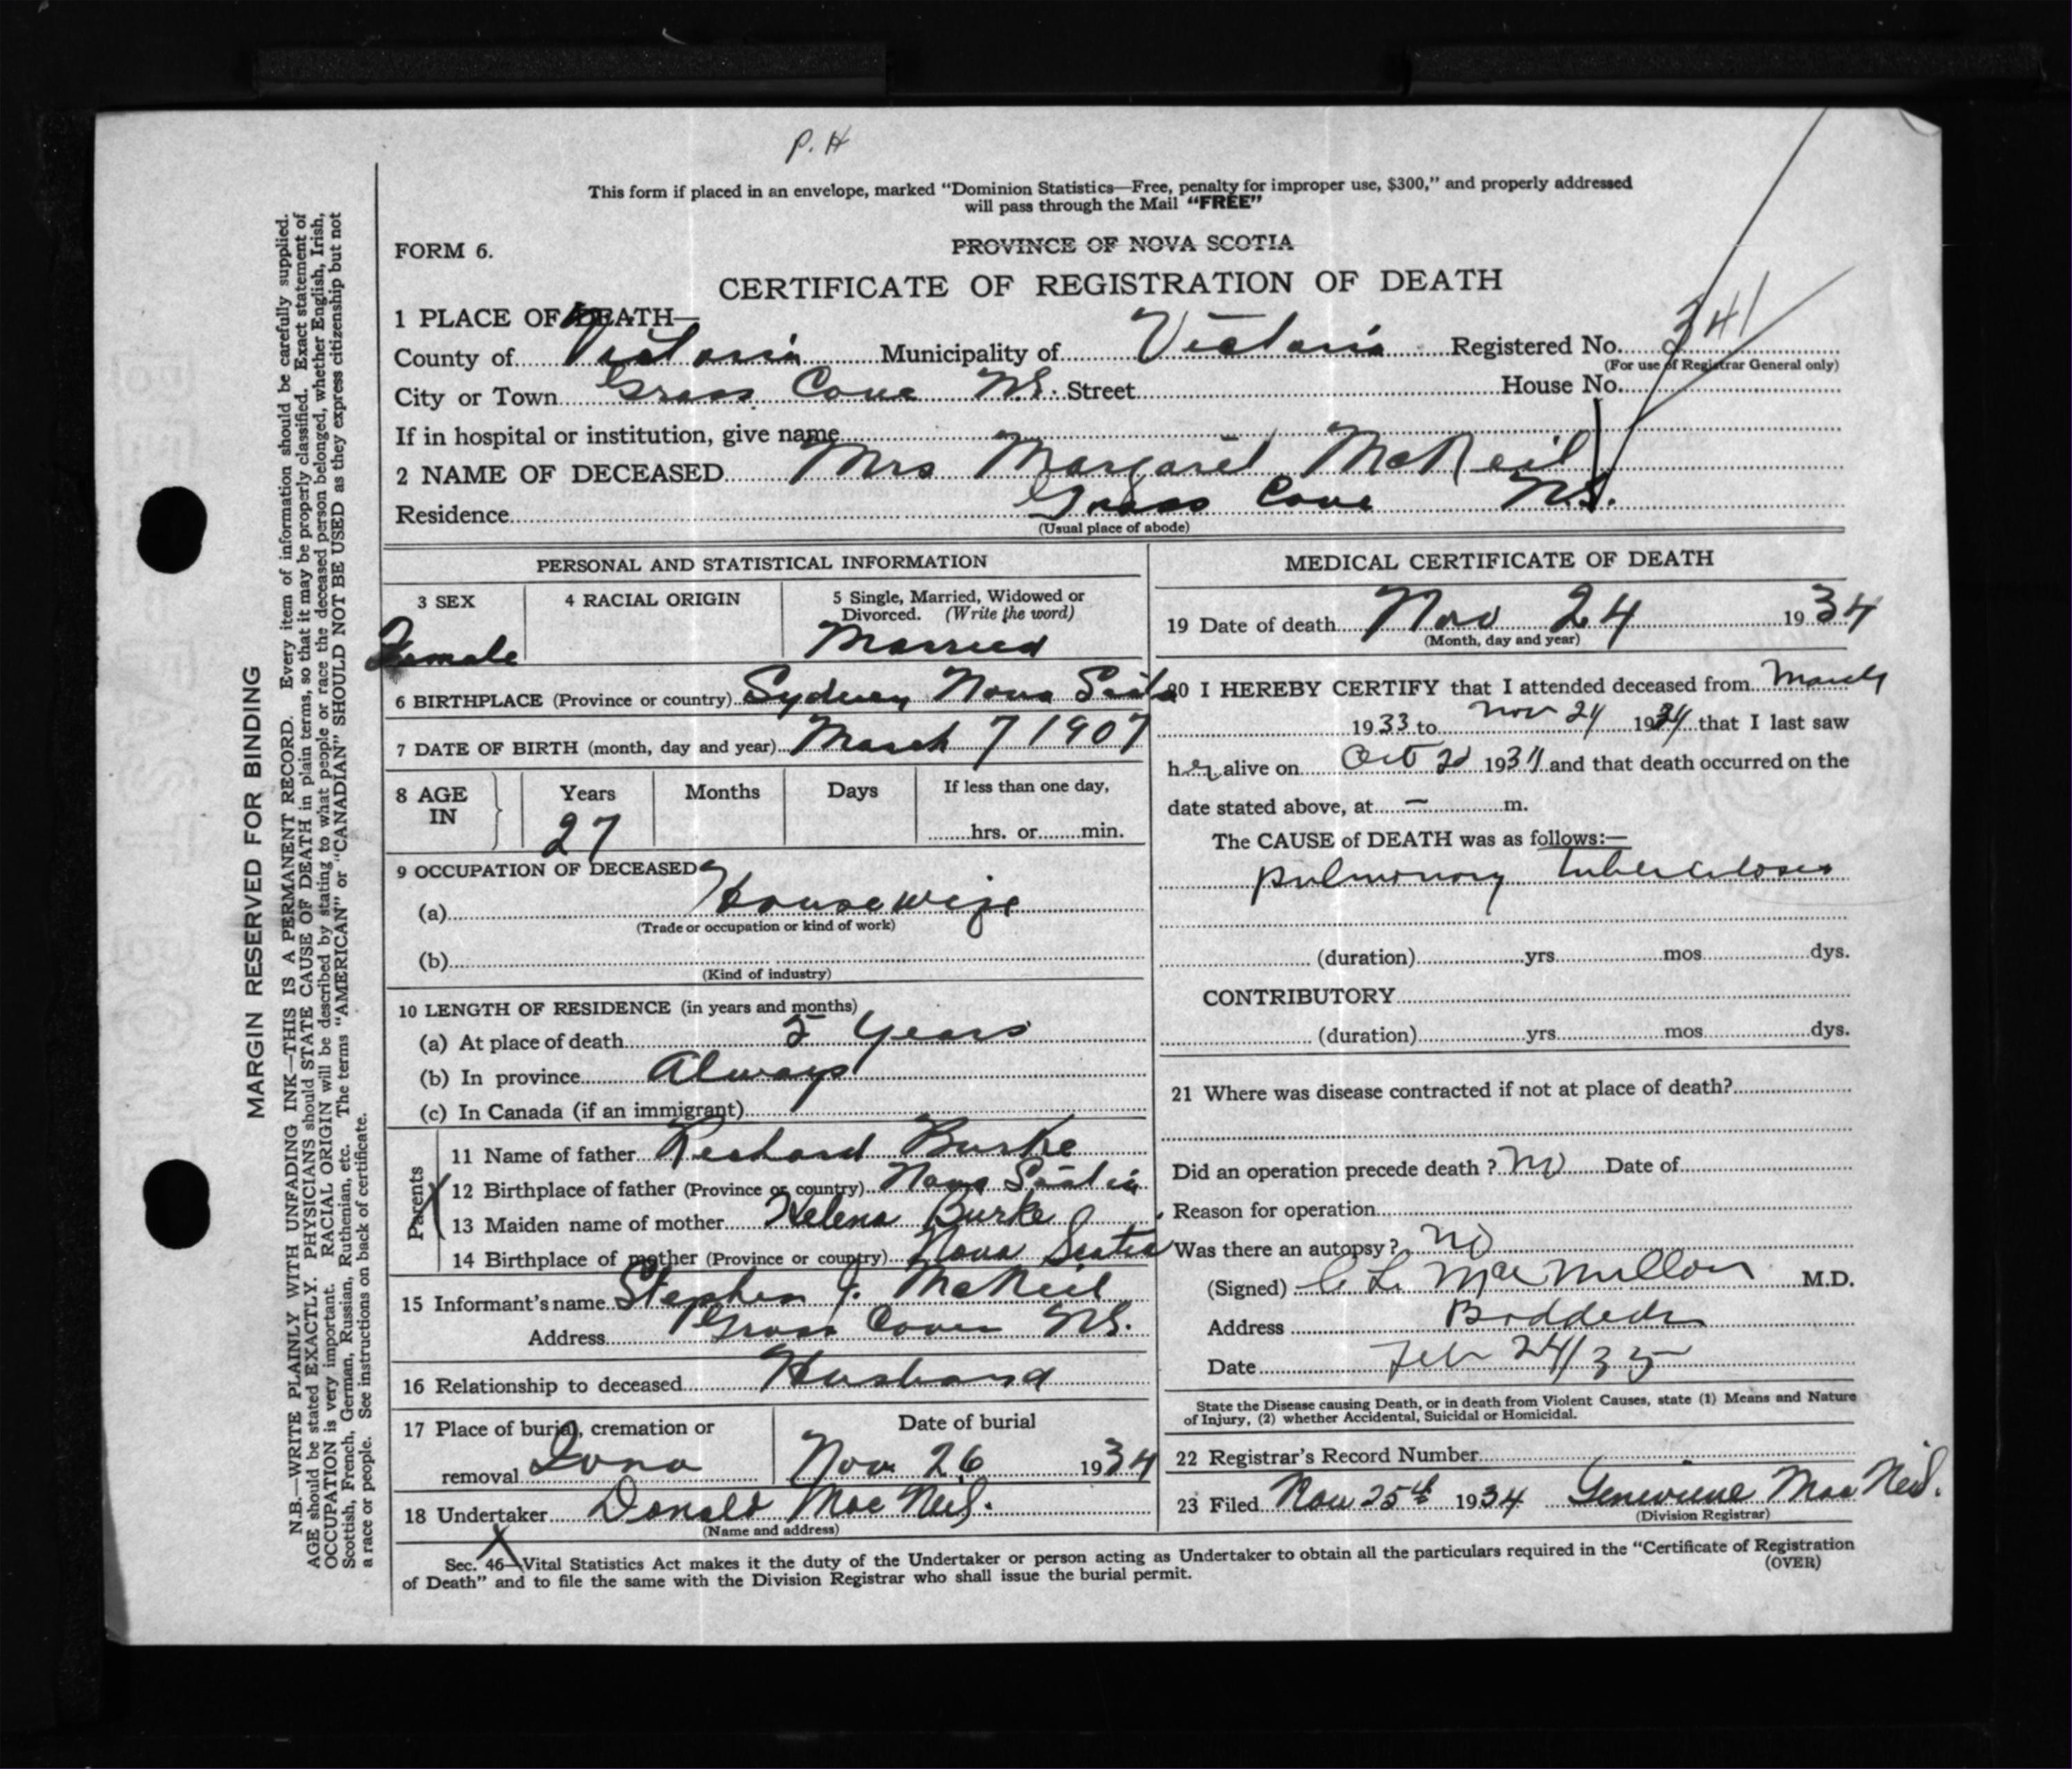 P. H
This form if placed in an envelope, marked "Dominion Statistics—Free, penalty for improper use, $300," and properly addressed
will pass through the Mail "FREE"
FORM 6.
PROVINCE OF NOVA SCOTIA
CERTIFICATE OF REGISTRATION OF DEATH
1 PLACE OF DEATH—
County of Victoria Municipality of Victoria Registered No. 341
(For use of Registrar General only)
City or Town Grass Cove N.S. Street House No.
If in hospital or institution, give name
2 NAME OF DECEASED Mrs Margaret McNeil
Residence Grass Cove N.S.
(Usual place of abode)
PERSONAL AND STATISTICAL INFORMATION
3 SEX 4 RACIAL ORIGIN 5 Single, Married, Widowed or
Divorced. (Write the word)
Female Married
6 BIRTHPLACE (Province or country) Sydney Nova Scotia
7 DATE OF BIRTH (month, day and year) March 7 1907
8 AGE IN Years Months Days If less than one day,
27 hrs. or min.
9 OCCUPATION OF DECEASED
(a) Housewife
(Trade or occupation or kind of work)
(b)
(Kind of industry)
10 LENGTH OF RESIDENCE (in years and months)
(a) At place of death Years
(b) In province Always
(c) In Canada (if an immigrant)
Parents
11 Name of father Richard Burke
12 Birthplace of father (Province or country) Nova Scotia
13 Maiden name of mother Helena Burke
14 Birthplace of mother (Province or country) Nova Scotia
15 Informant's name Stephen J. McNeil
Address Grass Cove N.S.
16 Relationship to deceased Husband
17 Place of burial, cremation or Date of burial
removal Iona Nov 26 1934
18 Undertaker Donald MacNeil.
(Name and address)
MEDICAL CERTIFICATE OF DEATH
19 Date of death Nov 24 1934
(Month, day and year)
20 I HEREBY CERTIFY that I attended deceased from March
1933 to Nov 24 1934 that I last saw
her alive on Oct 1934 and that death occurred on the
date stated above, at — m.
The CAUSE of DEATH was as follows:—
pulmonary tuberculosis
(duration) yrs. mos. dys.
CONTRIBUTORY
(duration) yrs. mos. dys.
21 Where was disease contracted if not at place of death?
Did an operation precede death? No Date of
Reason for operation
Was there an autopsy? No
(Signed) C L MacMillan M.D.
Address Baddeck
Date Feb 24/35
State the Disease causing Death, or in death from Violent Causes, state (1) Means and Nature
of Injury, (2) whether Accidental, Suicidal or Homicidal.
22 Registrar's Record Number
23 Filed Nov 25th 1934 Genevieve MacNeil.
(Division Registrar)
Sec. 46—Vital Statistics Act makes it the duty of the Undertaker or person acting as Undertaker to obtain all the particulars required in the "Certificate of Registration
of Death" and to file the same with the Division Registrar who shall issue the burial permit.
(OVER)
MARGIN RESERVED FOR BINDING
N.B.—WRITE PLAINLY WITH UNFADING INK—THIS IS A PERMANENT RECORD. Every item of information should be carefully supplied.
AGE should be stated EXACTLY. PHYSICIANS should STATE CAUSE OF DEATH in plain terms, so that it may be properly classified. Exact statement of
OCCUPATION is very important. RACIAL ORIGIN will be described by stating to what people or race the deceased person belonged, whether English, Irish,
Scottish, French, German, Russian, Ruthenian, etc. The terms "AMERICAN" or "CANADIAN" SHOULD NOT BE USED as they express citizenship but not
a race or people. See instructions on back of certificate.